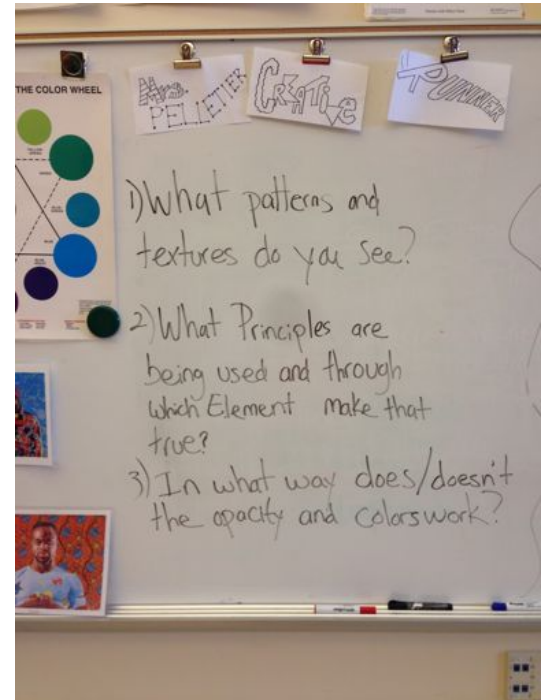 Mrs.
PELLETIER
CREATIVE
RUNNER
THE COLOR WHEEL
1) What patterns and
textures do you see?
2) What Principles are
being used and through
which Element make that
true?
3) In what way does/doesn't
the opacity and colors work?